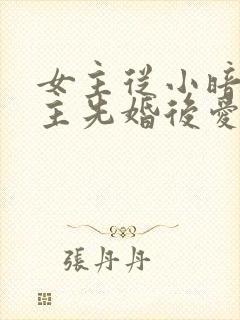 女主從小暗
主先婚後愛
張丹丹